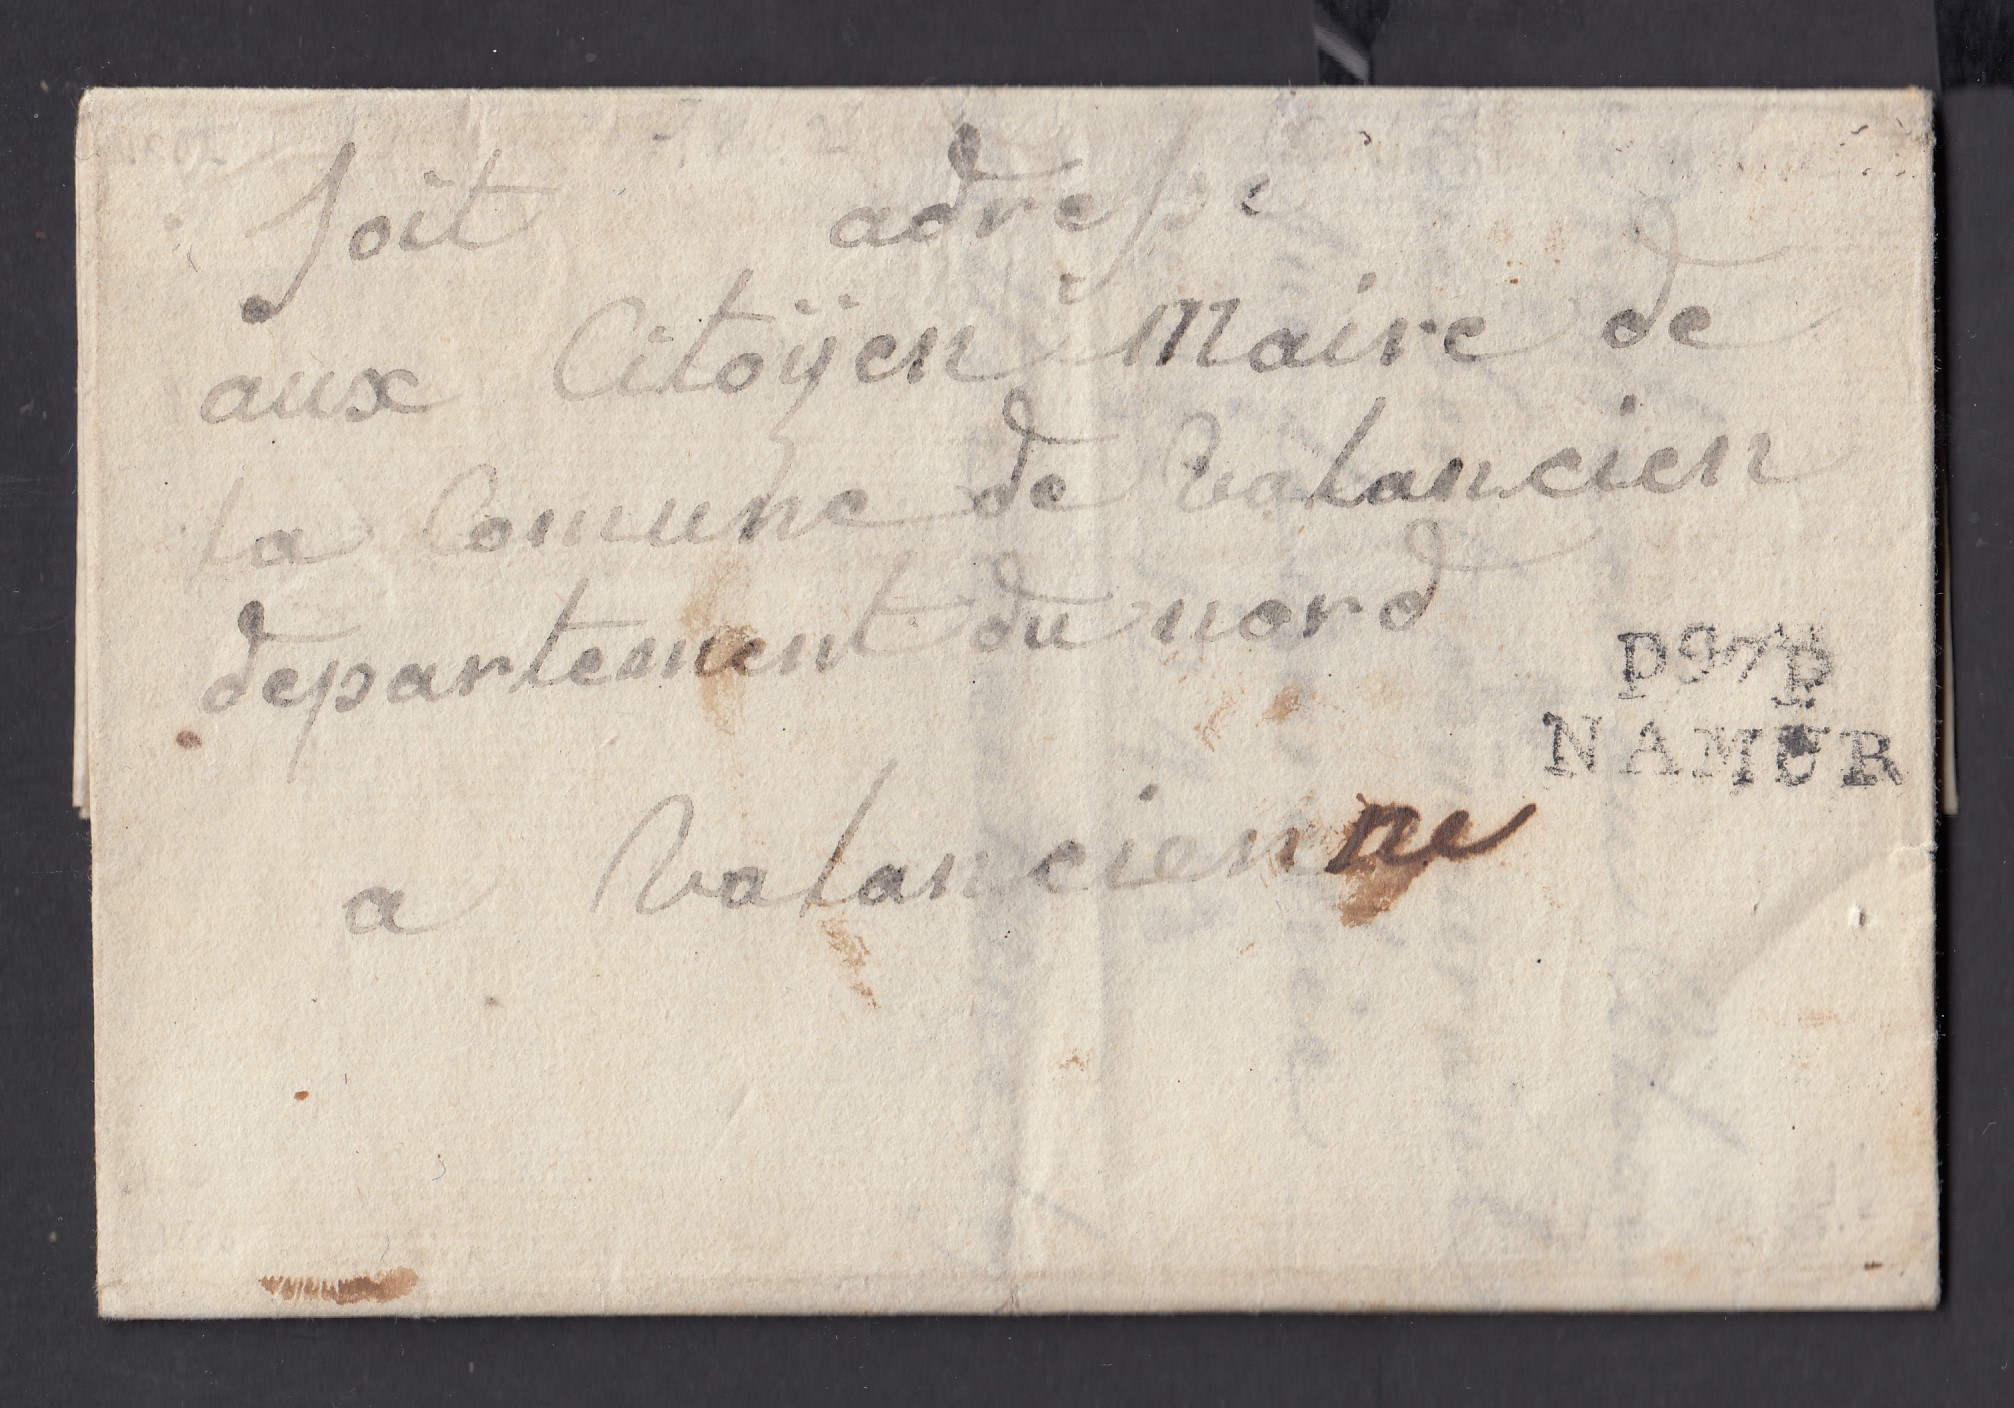 Soit adresse
aux Citoÿen Maire de
La Comune de Valancien
departement du nord
P97P
NAMUR
a Valancienne